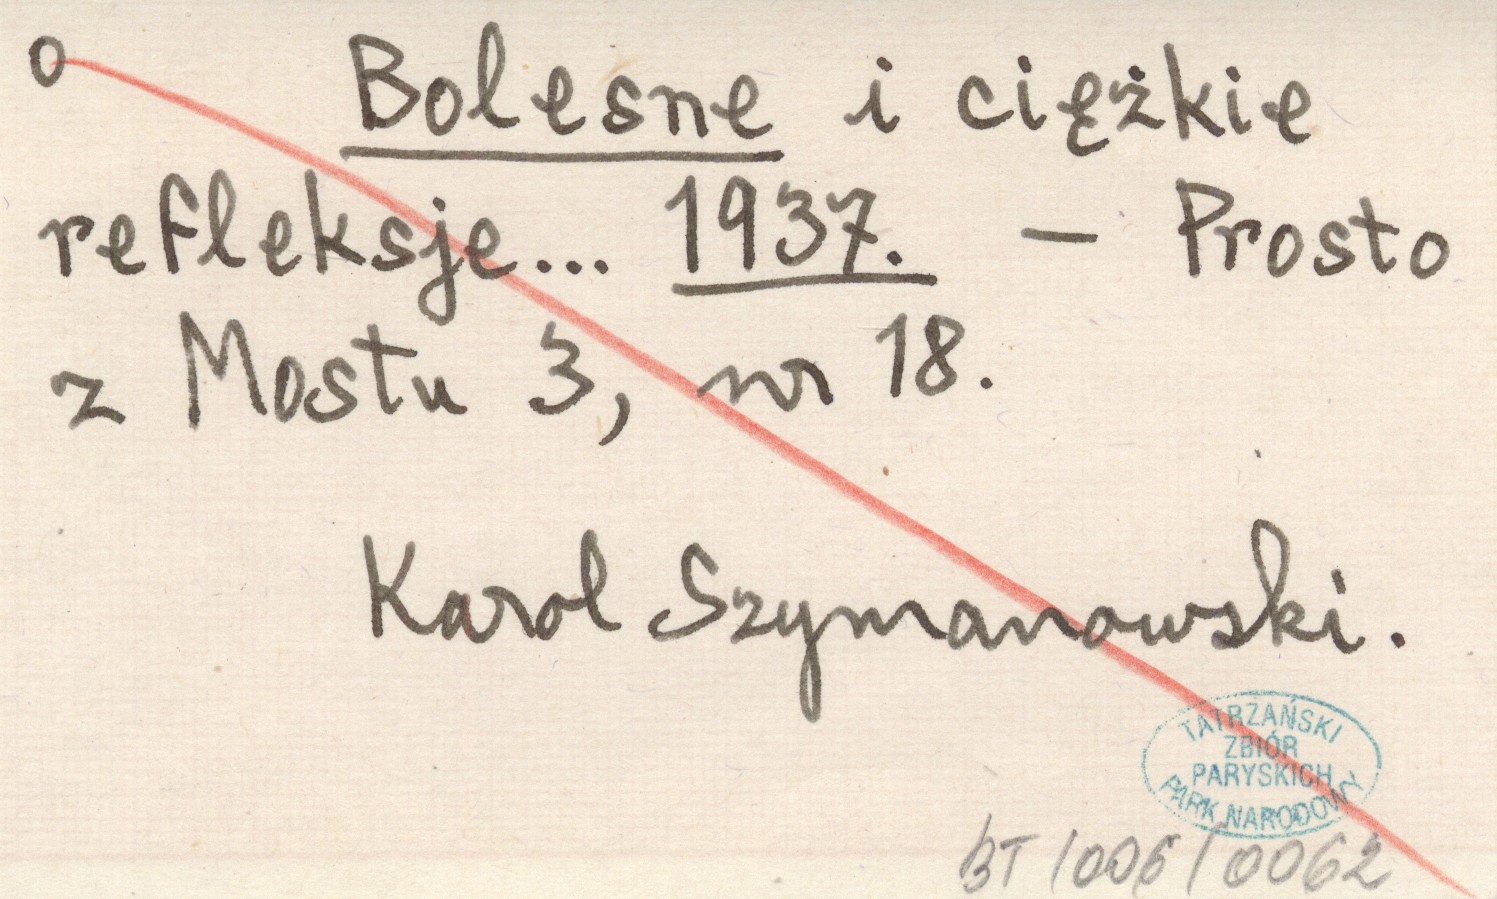 o Bolesne i ciężkie
refleksje... 1937. — Prosto
z Mostu 3, nr 18.
Karol Szymanowski.
TATRZAŃSKI
ZBIÓR
PARYSKICH
PARK NARODOWY
BT/006/0062